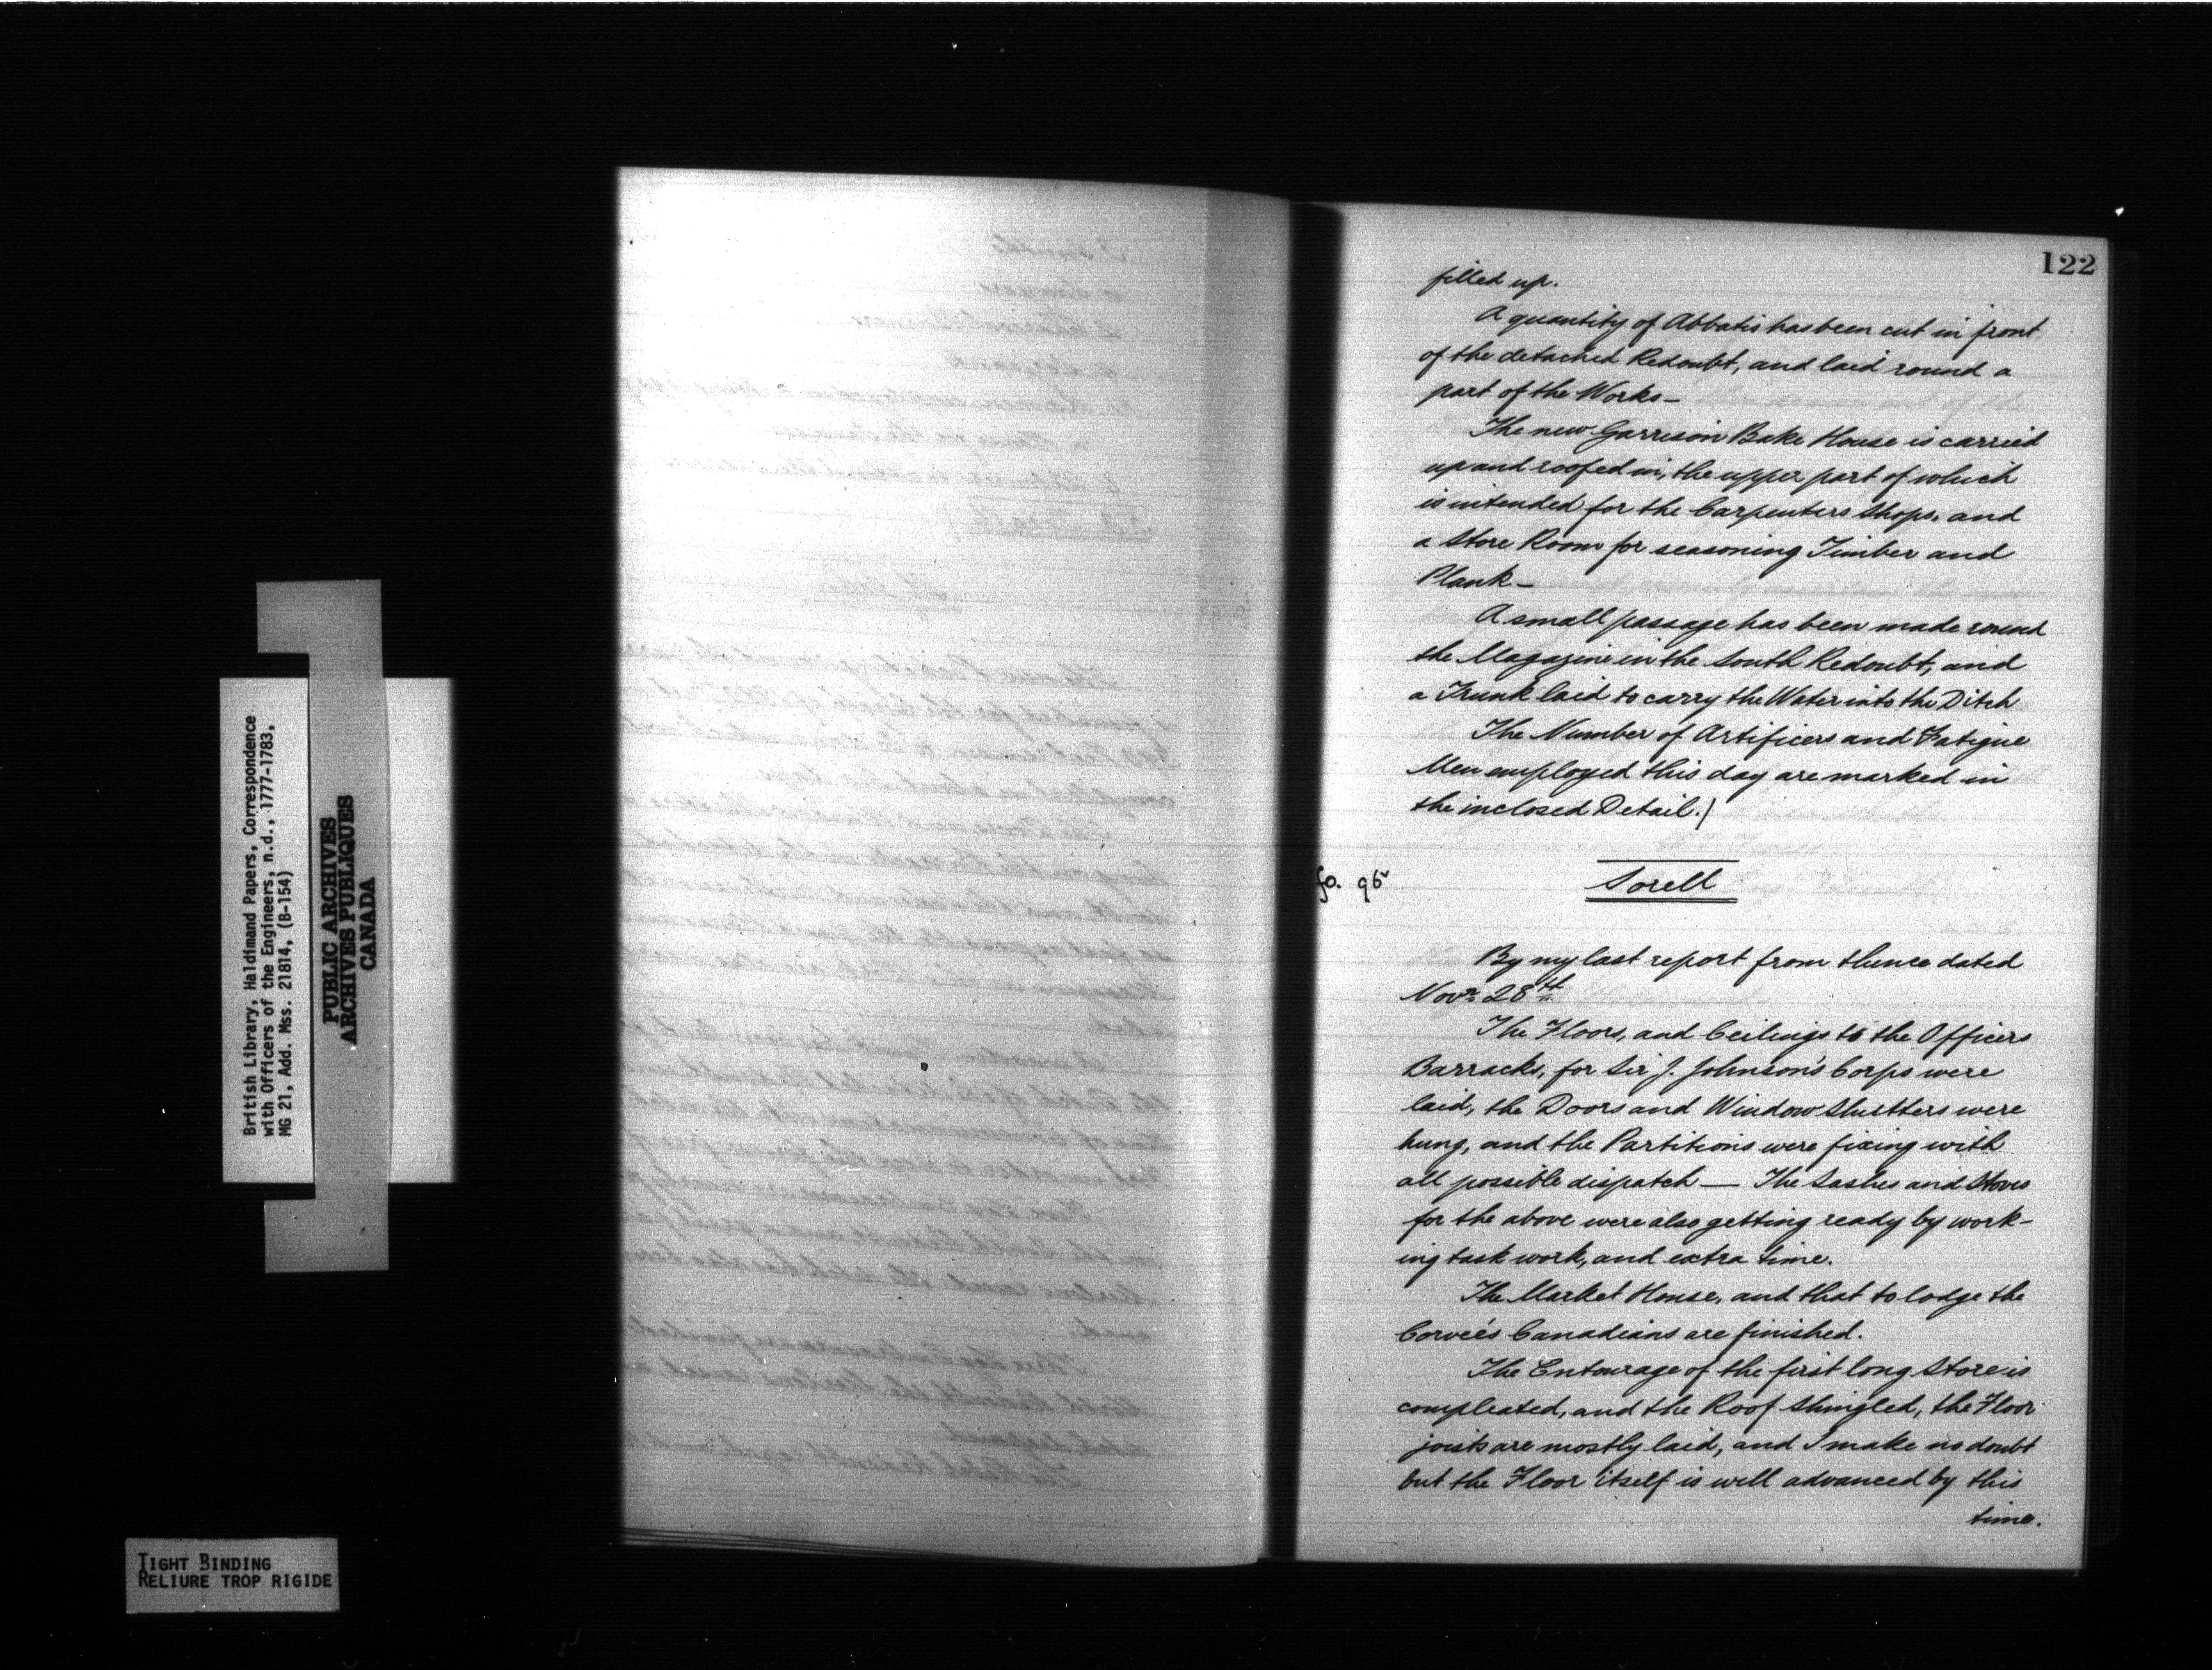 122
filled up.
A quantity of Abbatis has been cut in front
of the detached Redoubt, and laid round a
part of the Works—
The new Garrison Bake House is carried
up and roofed in, the upper part of which
is intended for the Carpenters Shops, and
a Store Room for seasoning Timber and
Plank—
A small passage has been made round
the Magazine in the South Redoubt, and
a Trunk laid to carry the Water into the Ditch
The Number of Artificers and Fatigue
Men employed this day are marked in
the inclosed Detail.)
fo. 96v
Sorell
By my last report from thence dated
Novr. 28th
The Floors, and Ceilings to the Officers
Barracks, for Sir J. Johnson's Corps were
laid, the Doors and Window Shutters were
hung, and the Partitions were fixing with
all possible dispatch — The Sashes and Stoves
for the above were also getting ready by work-
ing task work, and extra time.
The Market House, and that to lodge the
Corveés Canadians are finished.
The Entourage of the first long Store is
compleated, and the Roof Shingled, the Floor
joists are mostly laid, and I make no doubt
but the Floor itself is well advanced by this
time.
British Library, Haldimand Papers, Correspondence
with Officers of the Engineers, n.d., 1777-1783,
MG 21, Add. Mss. 21814, (B-154)
PUBLIC ARCHIVES
ARCHIVES PUBLIQUES
CANADA
TIGHT BINDING
RELIURE TROP RIGIDE